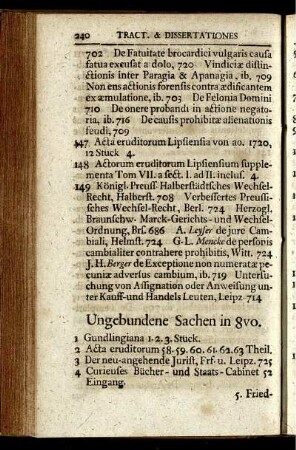 240 TRACT. & DISSERTATIONES
702 De Fatuitate brocardici vulgaris causa
fatua excusat a dolo, 720 Vindiciæ distin-
ctionis inter Paragia & Apanagia, ib. 709
Non ens actionis forensis contra ædificantem
ex æmulatione, ib. 703 De Felonia Domini
710 De onere probandi in actione negato-
ria, ib. 716 De causis prohibitæ alienationis
feudi, 709
147 Acta eruditorum Lipsiensia von ao. 1720,
12 Stück 4.
148 Actorum eruditorum Lipsiensium supple-
menta Tom VII. a sect. I. ad II. inclus. 4
149 Königl. Preuss. Halberstädtsches Wechsel-
Recht, Halberst. 708 Verbessertes Preussi-
sches Wechsel-Recht, Berl. 724 Herzogl.
Braunschw. Marck-Gerichts- und Wechsel-
Ordnung, Brs. 686 A. Leyser de jure Cam-
biali, Helmst. 724 G-L. Mencke de personis
cambialiter contrahere prohibitis, Witt. 724
J. H. Berger de Exceptione non numeratæ pe-
cuniæ adversus cambium, ib. 719 Untersu-
chung von Assignation oder Anweisung un-
ter Kauff-und Handels Leuten, Leipz. 714
Ungebundene Sachen in 8vo.
1 Gundlingiana 1. 2. 3. Stück.
2 Acta eruditorum 58. 59. 60. 61. 62. 63 Theil.
3 Der neu-angehende Jurist, Frf. u. Leipz. 725
4 Curieuses Bücher- und Staats-Cabinet 52
Eingang.
5. Fried-